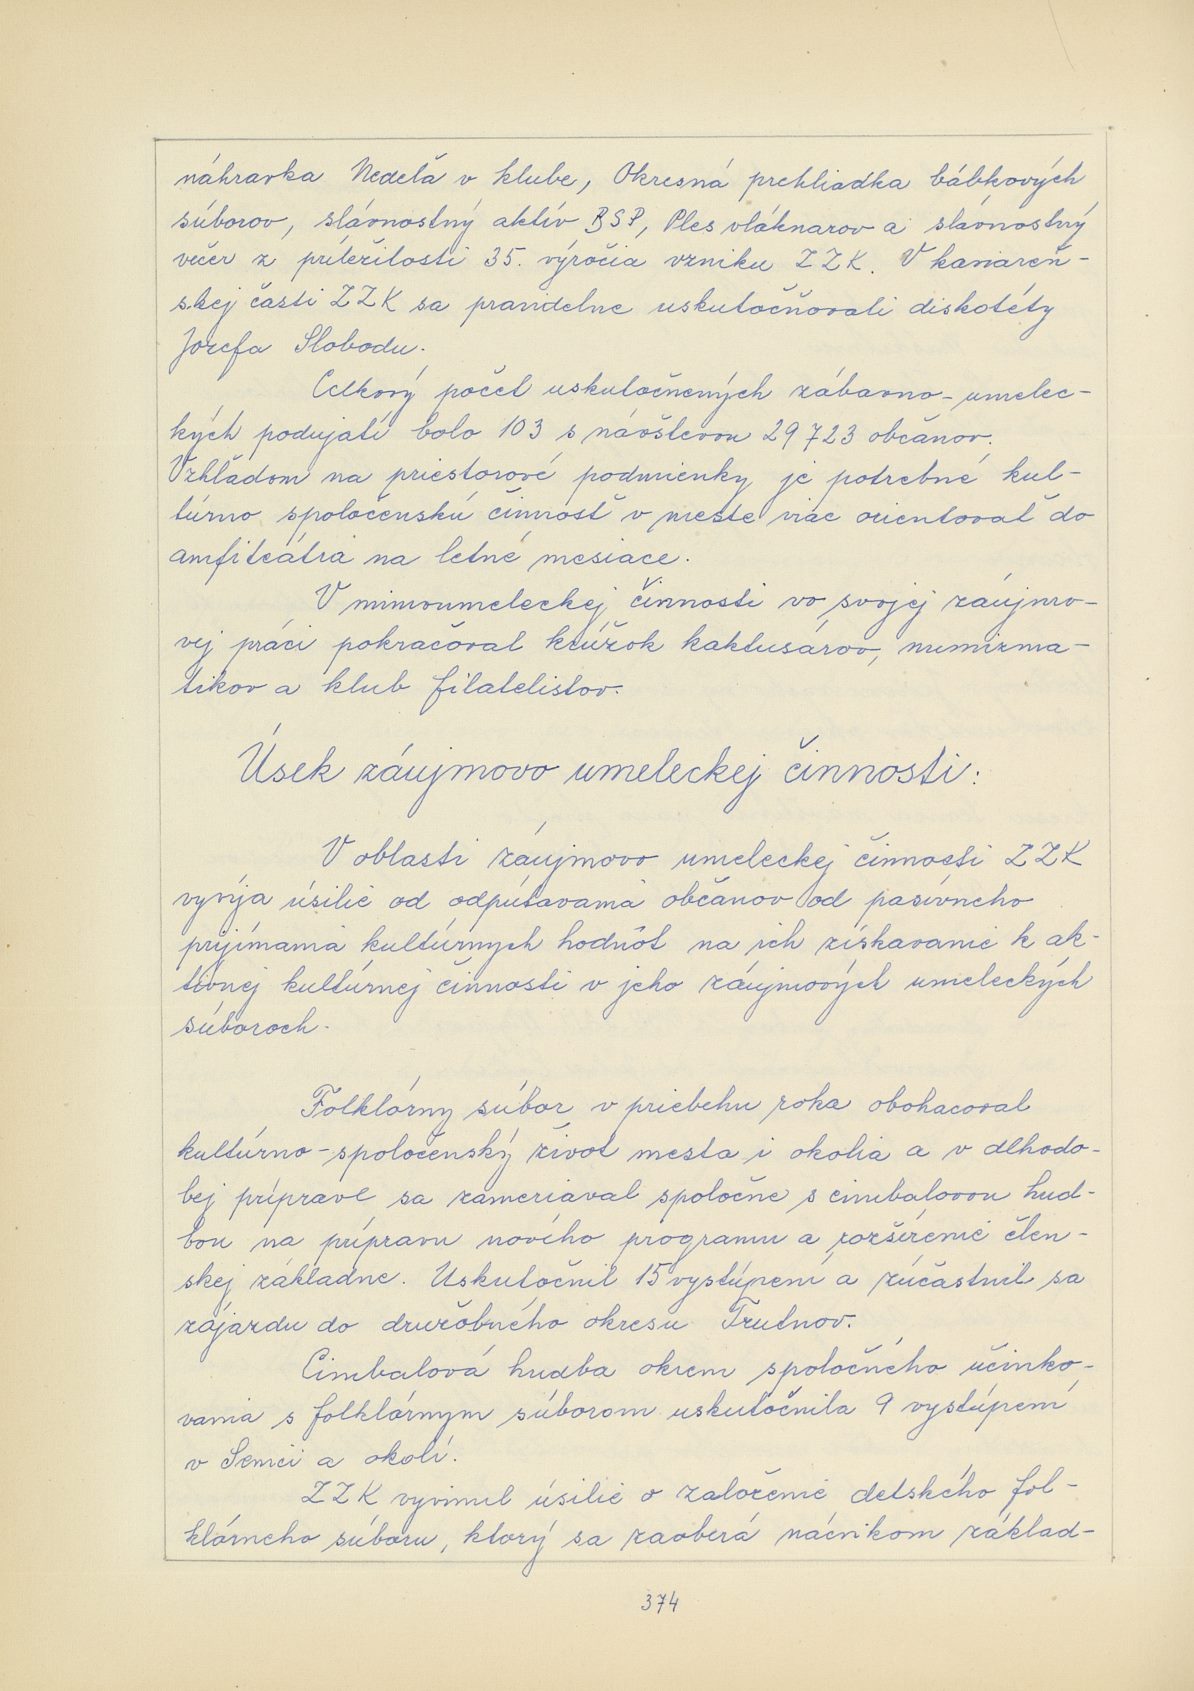 náhravka Nedeľa v klube, Okresná prehliadka bábkových
súborov, slávnostný aktív BSP, Ples vláknarov a slávnostný
večer z príležitosti 35. výročia vzniku ZZK. V kaviareň-
skej časti ZZK sa pravidelne uskutočňovali diskotéty
Jozefa Slobodu.
Celkový počet uskutočnených zábavno-umelec-
kých podujatí bolo 103 s návštevou 29 723 občanov.
Vzhľadom na priestorové podmienky je potrebné kul-
túrno spoločenskú činnosť v meste viac orientovať do
amfiteátra na letné mesiace.
V mimoumeleckej činnosti vo svojej záujmo-
vej práci pokračoval krúžok kaktusárov, numizma-
tikov a klub filatelistov.
Úsek záujmovo umeleckej činnosti:
V oblasti záujmovo umeleckej činnosti ZZK
vyvíja úsilie od odpútavania občanov od pasívneho
prijímania kultúrnych hodnôt na ich získavanie k ak-
tívnej kultúrnej činnosti v jeho záujmových umeleckých
súboroch.
Folklórny súbor v priebehu roka obohacoval
kultúrno-spoločenský život mesta i okolia a v dlhodo-
bej príprave sa zameriaval spoločne s cimbalovou hud-
bou na prípravu nového programu a rozšírenie člen-
skej základne. Uskutočnil 15 vystúpení a zúčastnil sa
zájazdu do družobného okresu Trutnov.
Cimbalová hudba okrem spoločného účinko-
vania s folklórnym súborom uskutočnila 9 vystúpení
v Senici a okolí.
ZZK vyvinul úsilie o založenie detského fol-
klórneho súboru, ktorý sa zaoberá nácvikom základ-
374